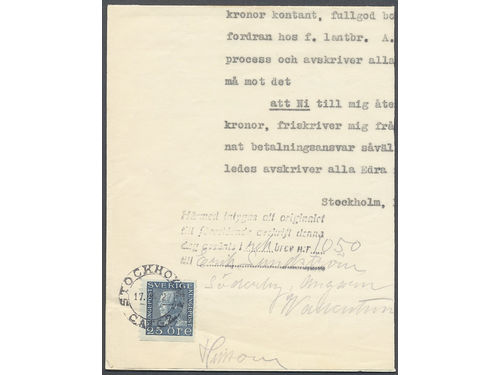 kronor kontant, fullgod bo
fordran hos f. lantbr. A.
process och avskriver alla
må mot det
att Ni till mig åte
kronor, friskriver mig frå
nat betalningsansvar såväl
ledes avskriver alla Edra
Stockholm,
Härmed intygas att originalet
till förestående avskrift denna
dag avsänts i rek. brev n:r 1050
till Sundström
Söderby,
STOCKHOLM
17.
SVERIGE
25 ÖRE